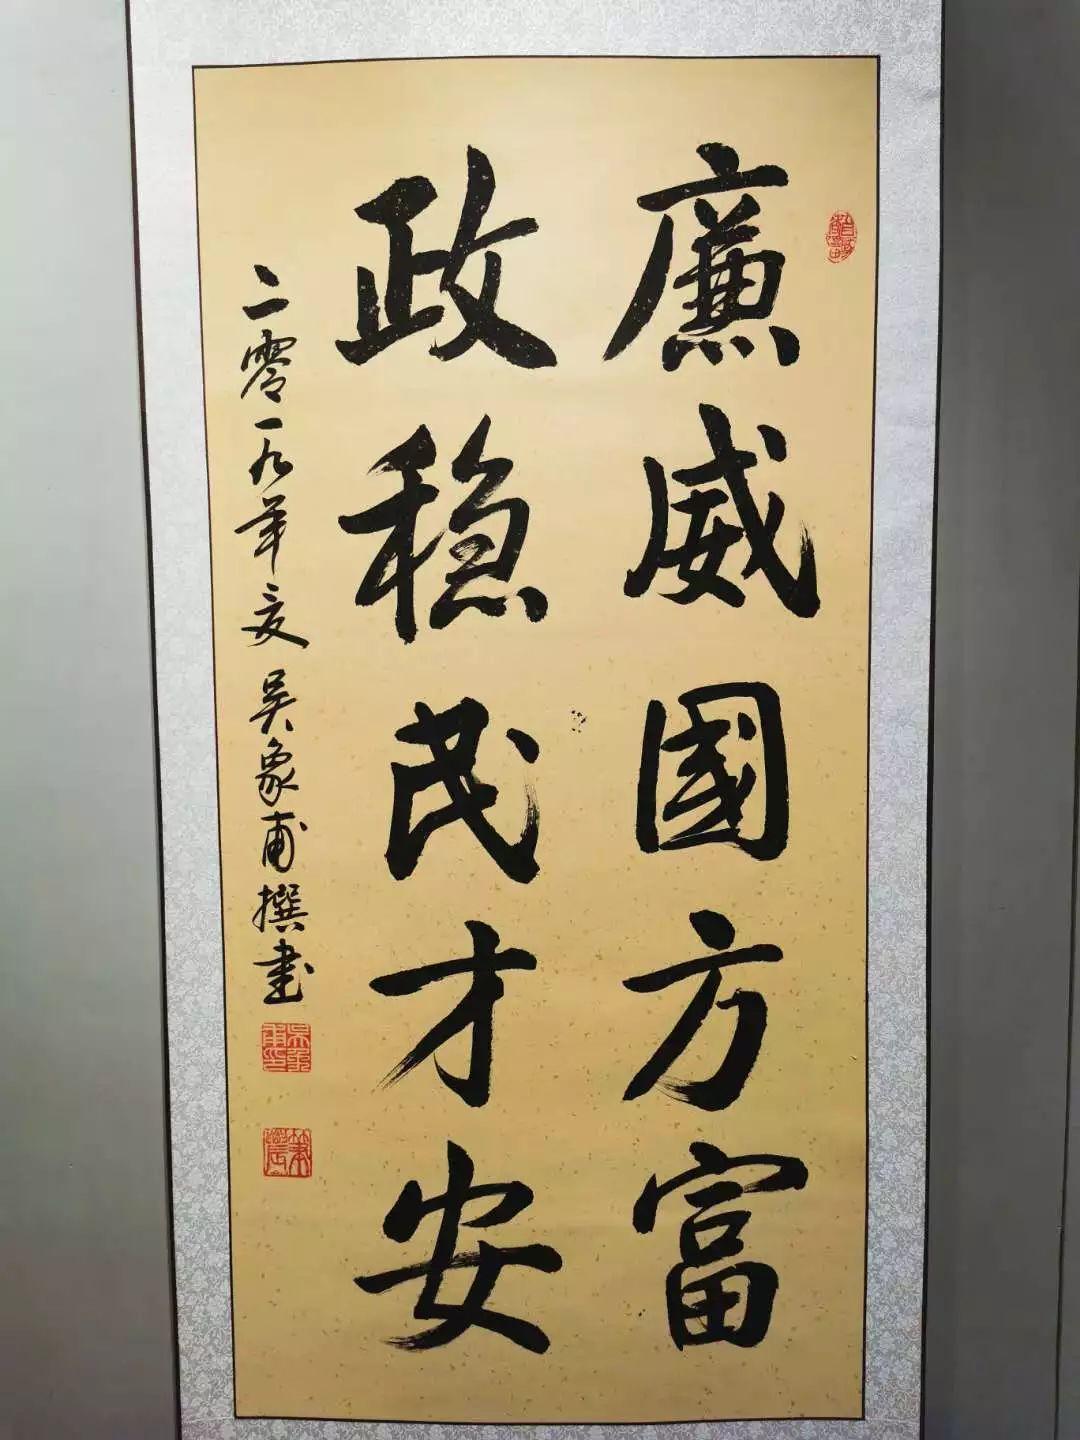 廉威國方富
政稳民才安
二零一九年夏吴象甫撰書